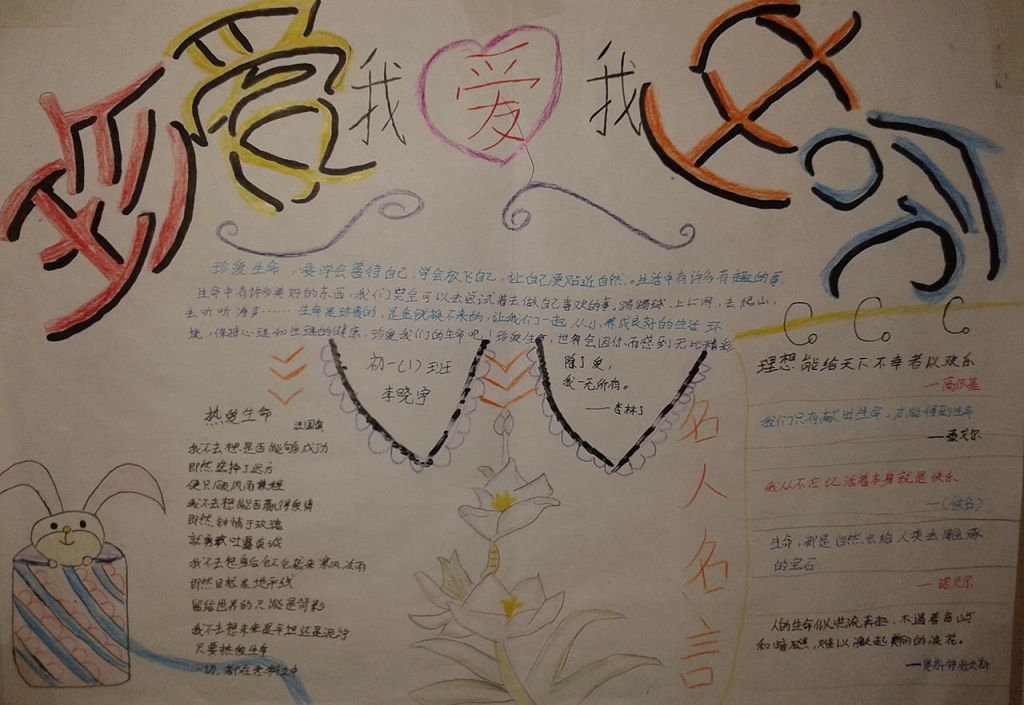 珍爱
我爱我
珍爱生命,要学会善待自己,学会放飞自己,让自己更贴近自然。生活中有许多有趣的事
生命中有许多美好的东西,我们完全可以去尝试着去做自己喜欢的事。踢踢球,上上网,去爬山,
去听听涛声…… 生命是珍贵的,是金钱换不来的,让我们一起从小养成良好的生活环
境,保持心理和生理的健康,珍爱我们的生命吧!珍爱生命,世界会因你而感到无比精彩
初一(1)班
李晓宇
除了爱,
我一无所有。
——杏林子
热爱生命
汪国真
我不去想是否能够成功
即然选择了远方
便只顾风雨兼程
我不去想能否赢得爱情
即然钟情于玫瑰
就勇敢吐露真诚
我不去想身后会不会袭来寒风冷雨
即然目标是地平线
留给世界的只能是背影
我不去想未来是平坦还是泥泞
只要热爱生命
一切,都在意料之中
名人名言
理想能给天下不幸者以欢乐
—高尔基
我们只有献出生命,才能得到生命
—泰戈尔
我从不忘记活着本身就是快乐
—(佚名)
生命,那是自然会给人类去雕琢
的宝石
—诺贝尔
人的生命似洪流奔腾,不遇着岛屿
和暗礁,难以激起美丽的浪花。
—奥斯特洛夫斯